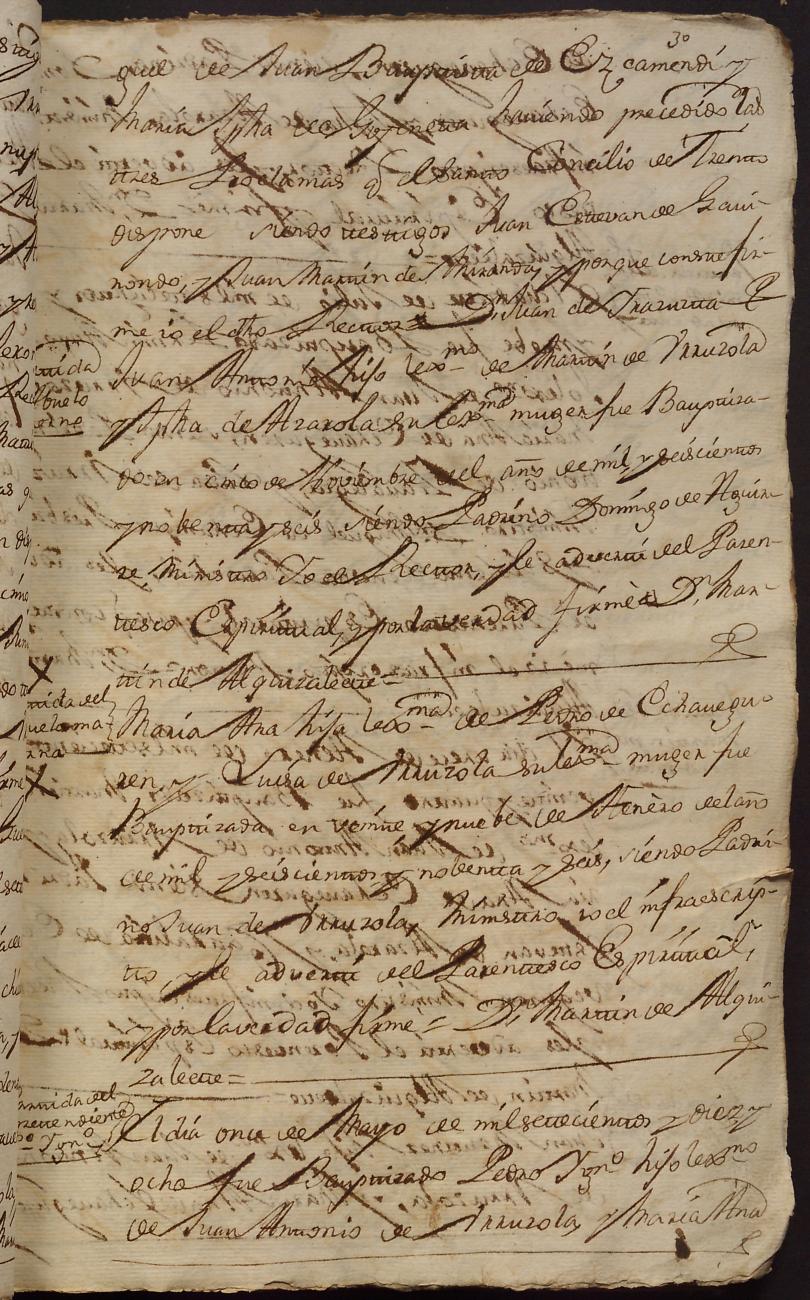 30
quel de Juan Bauptista de Ezcamendi y
Maria Jpha de Goyeneta haviendo precedido las
tres Proclamas q el Santo Concilio de Trento
dispone siendo testigos Juan Estevan de Gavi-
rondo, y Juan Martin de Miranda, y porque conste fir-
me io el dho Rector = Dn Juan de Yrazuzta
Juan Antonio hijo lexmo de Martin de Yrruzola
y Jpha de Ararola su lexma muger fue Bauptiza-
do en cinco de Noviembre del año de mil y seiscientos
y nobenta y seis siendo Padrino Domingo de Aguir-
re, Ministro Yo el Rector, y le adverti del Paren-
tesco Espiritual, y por la verdad firmè Dn Mar-
tin de Alquizalette =
Maria Ana hija lexma de Pedro de Echavegu-
ren, y Luisa de Yrruzola su lexma muger fue
Bauptizada en veinte y nuebe de Henero del año
de mil y seiscientos y nobenta y seis, siendo Padri-
no Juan de Yrruzola, Ministro io el infraescrip-
to, y le adverti del Parentesco Espiritual,
y por la verdad firme = Dn Martin de Alqui-
zalette =
El dia once de Mayo de mil setecientos y diez y
ocho fue Bauptizado Pedro Ygno hijo lexmo
de Juan Antonio de Yrruzola, y Maria Ana